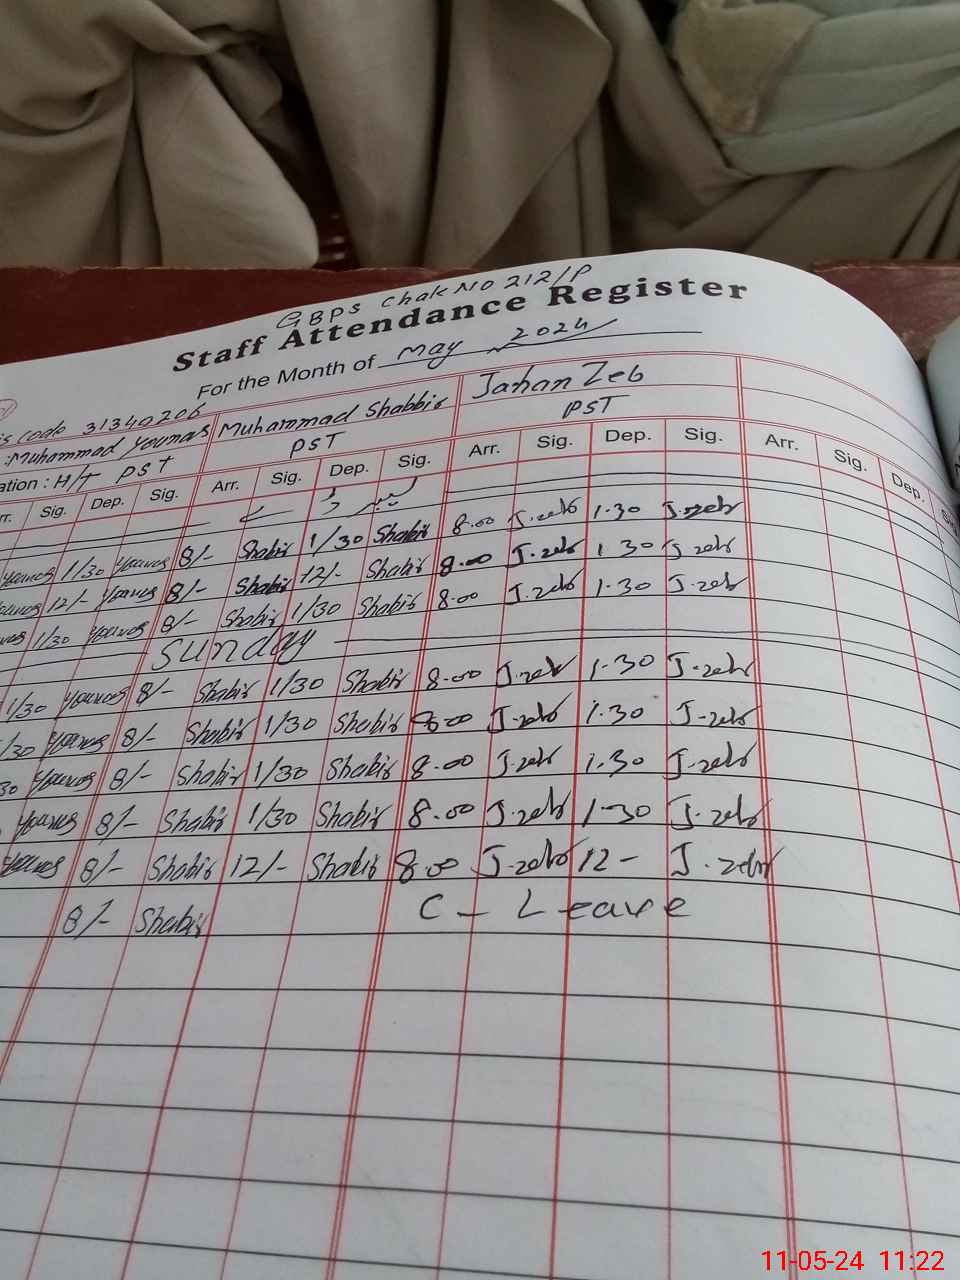 GBPS Chak No 212/P
Staff Attendance Register
For the Month of May 2024
is code 31340206
: Muhammad Younas Muhammad Shabbir Jahan Zeb
ation : H/T PST PST PST
rr. Sig. Dep. Sig. Arr. Sig. Dep. Sig. Arr. Sig. Dep. Sig. Arr. Sig. Dep.
Younas 1/30 Younas 8/- Shabir 1/30 Shabir 8.00 J.zeb 1.30 J.zeb
12/- Younas 8/- Shabir 12/- Shabir 8.00 J.zeb 1.30 J.zeb
1/30 Younas 8/- Shabir 1/30 Shabir 8.00 J.zeb 1.30 J.zeb
Sunday
1/30 Younas 8/- Shabir 1/30 Shabir 8.00 J.zeb 1.30 J.zeb
/30 Younas 8/- Shabir 1/30 Shabir 8.00 J.zeb 1.30 J.zeb
30 Younas 8/- Shabir 1/30 Shabir 8.00 J.zeb 1.30 J.zeb
Younas 8/- Shabir 1/30 Shabir 8.00 J.zeb 1.30 J.zeb
Younas 8/- Shabir 12/- Shabir 8.00 J.zeb 12- J.zeb
8/- Shabir C - Leave
11-05-24 11:22